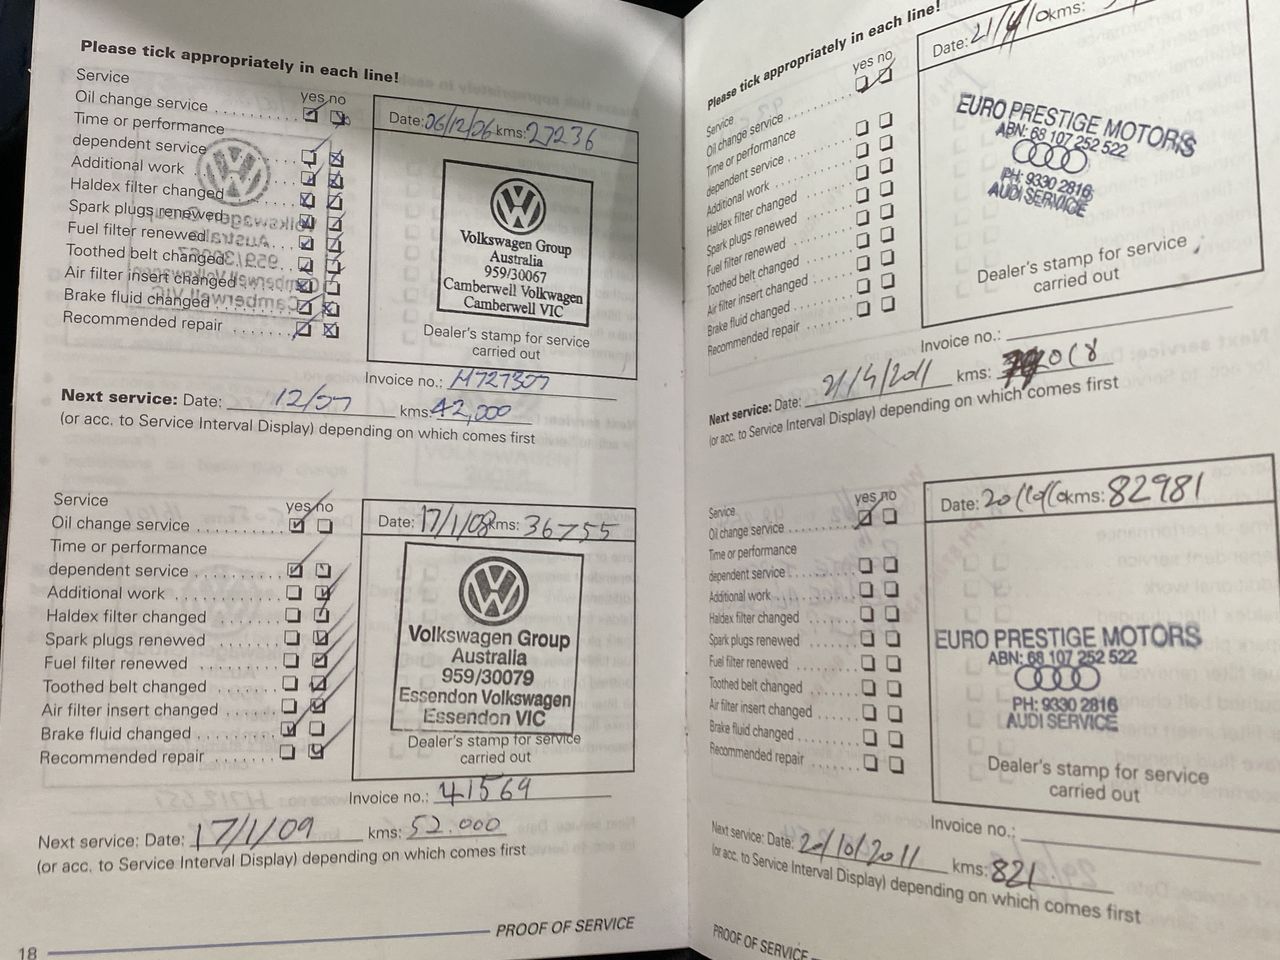 Please tick appropriately in each line!
Service
yes no
Oil change service
Time or performance
dependent service
Additional work
Haldex filter changed
Spark plugs renewed
Fuel filter renewed
Toothed belt changed
Air filter insert changed
Brake fluid changed
Recommended repair
Date: 06/12/06 kms: 27236
Volkswagen Group
Australia
959/30067
Camberwell Volkswagen
Camberwell VIC
Dealer's stamp for service
carried out
Invoice no.:
Next service: Date: 12/07 kms: 42,000
(or acc. to Service Interval Display) depending on which comes first
Service
yes no
Oil change service
Time or performance
dependent service
Additional work
Haldex filter changed
Spark plugs renewed
Fuel filter renewed
Toothed belt changed
Air filter insert changed
Brake fluid changed
Recommended repair
Date: 17/1/08 kms: 36755
Volkswagen Group
Australia
959/30079
Essendon Volkswagen
Essendon VIC
Dealer's stamp for service
carried out
Invoice no.: 41569
Next service: Date: 17/1/09 kms: 52.000
(or acc. to Service Interval Display) depending on which comes first
18
PROOF OF SERVICE
Please tick appropriately in each line!
Service
yes no
Oil change service
Time or performance
dependent service
Additional work
Haldex filter changed
Spark plugs renewed
Fuel filter renewed
Toothed belt changed
Air filter insert changed
Brake fluid changed
Recommended repair
Date: 21/4/10 kms:
EURO PRESTIGE MOTORS
ABN: 68 107 252 522
PH: 9330 2816
AUDI SERVICE
Dealer's stamp for service
carried out
Invoice no.:
Next service: Date: 21/4/2011 kms:
(or acc. to Service Interval Display) depending on which comes first
Service
yes no
Oil change service
Time or performance
dependent service
Additional work
Haldex filter changed
Spark plugs renewed
Fuel filter renewed
Toothed belt changed
Air filter insert changed
Brake fluid changed
Recommended repair
Date: 20/10/10 kms: 82981
EURO PRESTIGE MOTORS
ABN: 68 107 252 522
PH: 9330 2816
AUDI SERVICE
Dealer's stamp for service
carried out
Invoice no.:
Next service: Date: 20/10/2011 kms: 821
(or acc. to Service Interval Display) depending on which comes first
PROOF OF SERVICE